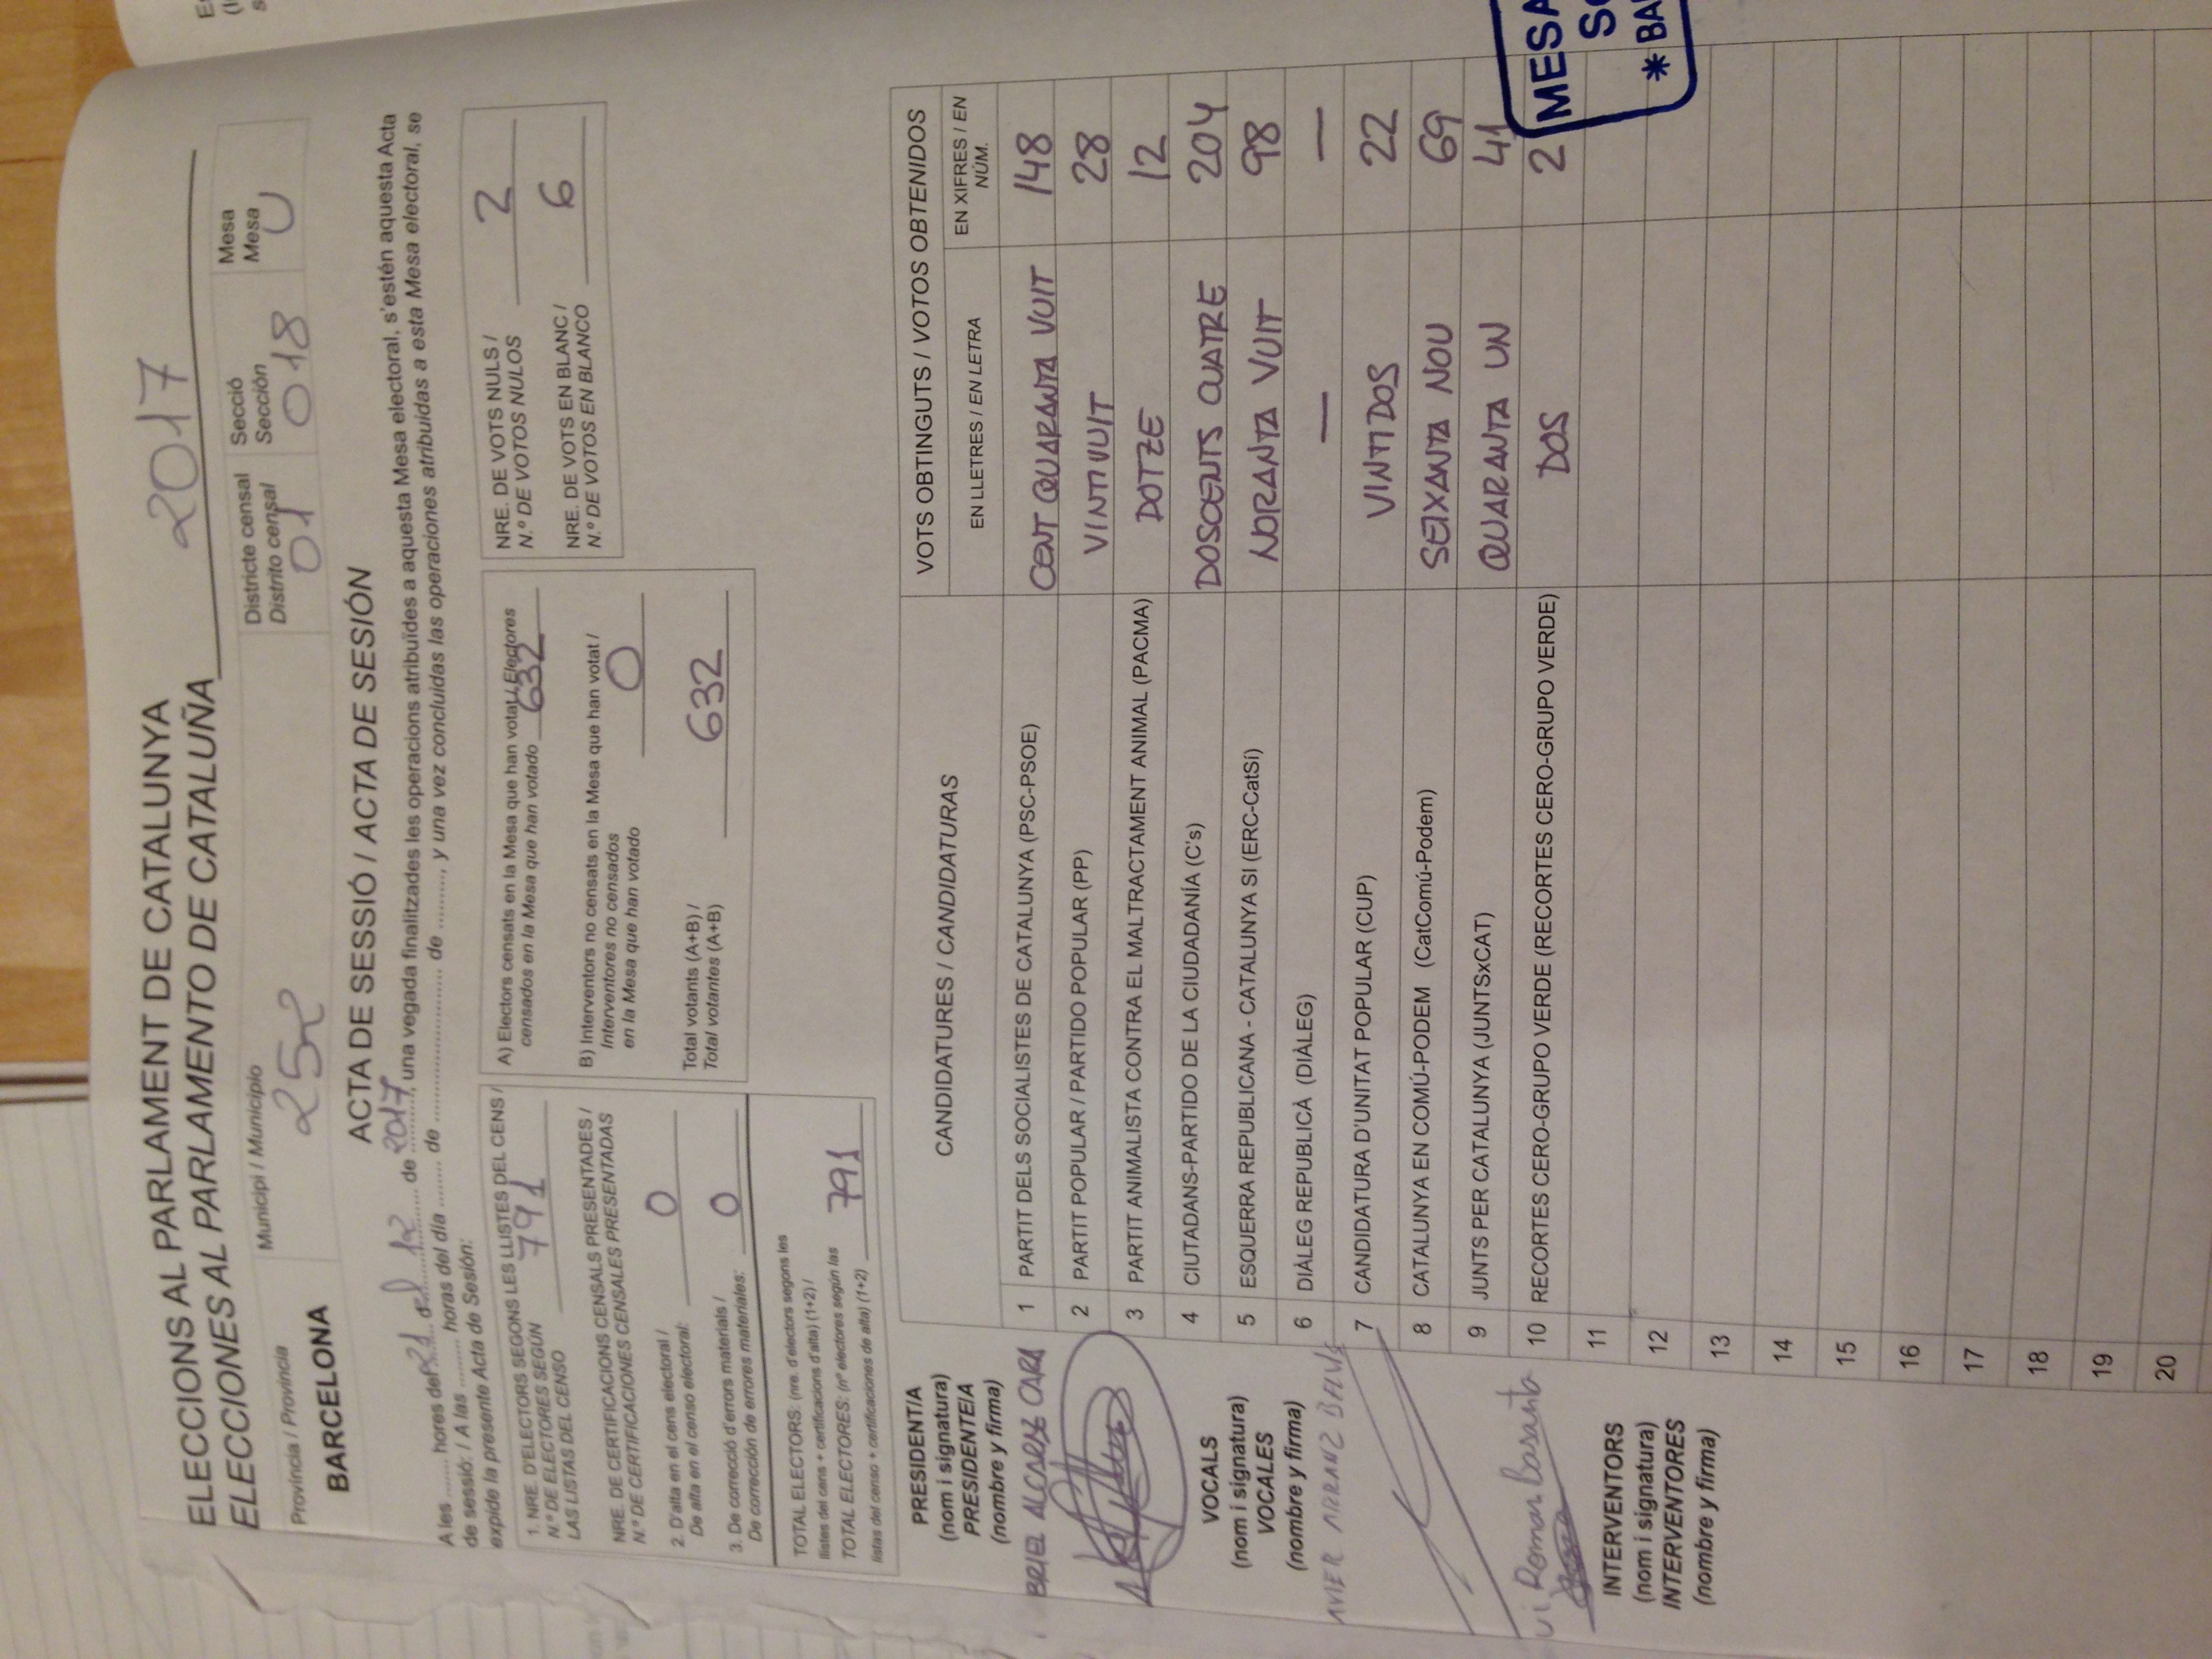 ELECCIONS AL PARLAMENT DE CATALUNYA
ELECCIONES AL PARLAMENTO DE CATALUÑA 2017
Província / Provincia
BARCELONA
Municipi / Municipio
252
Districte censal
Distrito censal
01
Secció
Sección
018
Mesa
Mesa
U
ACTA DE SESSIÓ / ACTA DE SESIÓN
A les ........ hores del 21 del 12 de 2017, una vegada finalitzades les operacions atribuïdes a aquesta Mesa electoral, s'estén aquesta Acta
de sessió: / A las ......... horas del día ........ de .......................... de .........., y una vez concluidas las operaciones atribuidas a esta Mesa electoral, se
expide la presente Acta de Sesión:
1. NRE. D'ELECTORS SEGONS LES LLISTES DEL CENS /
N.º DE ELECTORES SEGÚN
LAS LISTAS DEL CENSO 791
NRE. DE CERTIFICACIONS CENSALS PRESENTADES /
N.º DE CERTIFICACIONES CENSALES PRESENTADAS
2. D'alta en el cens electoral /
De alta en el censo electoral: 0
3. De correcció d'errors materials /
De corrección de errores materiales: 0
TOTAL ELECTORS: (nre. d'electors segons les
llistes del cens + certificacions d'alta) (1+2) /
TOTAL ELECTORES: (nº electores según las
listas del censo + certificaciones de alta) (1+2) 791
A) Electors censats en la Mesa que han votat / Electores
censados en la Mesa que han votado 632
B) Interventors no censats en la Mesa que han votat /
Interventores no censados
en la Mesa que han votado 0
Total votants (A+B) /
Total votantes (A+B) 632
NRE. DE VOTS NULS /
N.º DE VOTOS NULOS 2
NRE. DE VOTS EN BLANC /
N.º DE VOTOS EN BLANCO 6
PRESIDENT/A
(nom i signatura)
PRESIDENTE/A
(nombre y firma)
BRIEL ALCARAZ CARA
VOCALS
(nom i signatura)
VOCALES
(nombre y firma)
AVIER ARRANZ
vi Roman Basanta
INTERVENTORS
(nom i signatura)
INTERVENTORES
(nombre y firma)
CANDIDATURES / CANDIDATURAS
VOTS OBTINGUTS / VOTOS OBTENIDOS
EN LLETRES / EN LETRA
EN XIFRES / EN
NÚM.
1 PARTIT DELS SOCIALISTES DE CATALUNYA (PSC-PSOE) CENT QUARANTA VUIT 148
2 PARTIT POPULAR / PARTIDO POPULAR (PP) VINTIVUIT 28
3 PARTIT ANIMALISTA CONTRA EL MALTRACTAMENT ANIMAL (PACMA) DOTZE 12
4 CIUTADANS-PARTIDO DE LA CIUDADANÍA (C's) DOSCENTS CUATRE 204
5 ESQUERRA REPUBLICANA - CATALUNYA SI (ERC-CatSí) NORANTA VUIT 98
6 DIÀLEG REPUBLICÀ (DIÀLEG) — —
7 CANDIDATURA D'UNITAT POPULAR (CUP) VINTIDOS 22
8 CATALUNYA EN COMÚ-PODEM (CatComú-Podem) SEIXANTA NOU 69
9 JUNTS PER CATALUNYA (JUNTSxCAT) QUARANTA UN 41
10 RECORTES CERO-GRUPO VERDE (RECORTES CERO-GRUPO VERDE) DOS 2
11
12
13
14
15
16
17
18
19
20
MESA
* BA